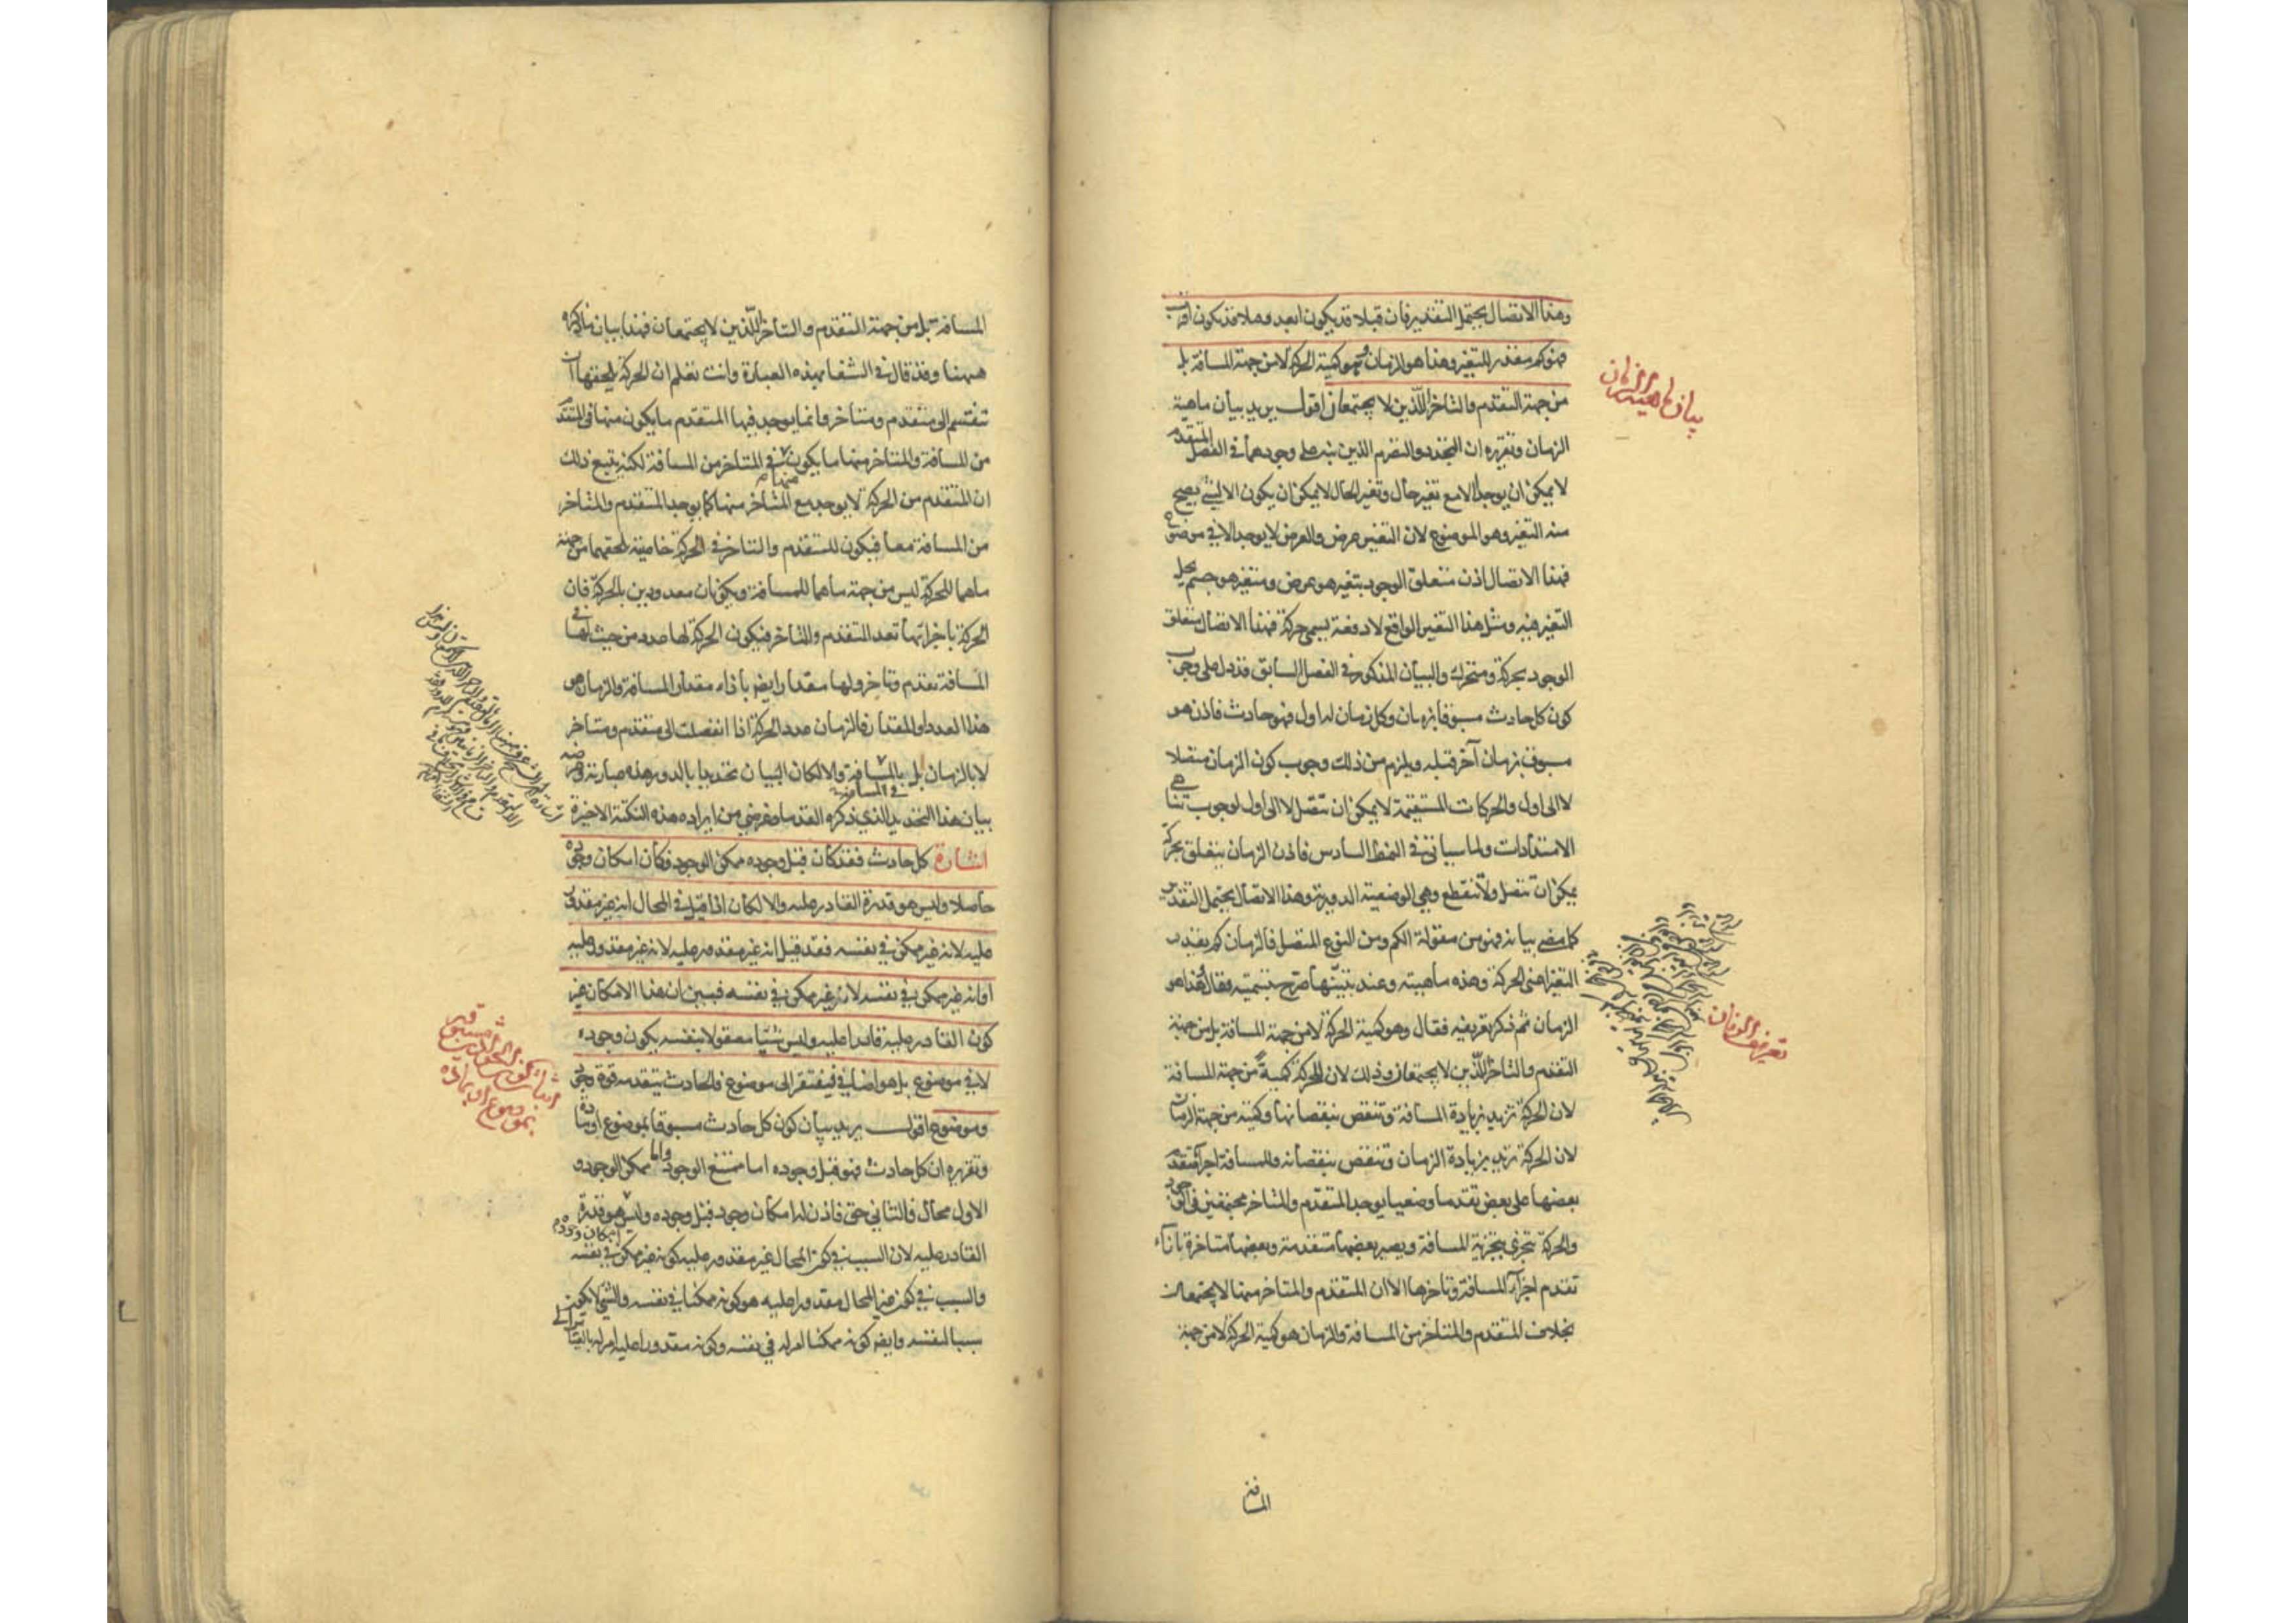 وهذا الاتصال يحتمل التقدير فان قبلا قد يكون ابعد وقبلا قد يكون اقرب
فهو كم مقدر للتغير وهذا هو الزمان وهو كمية الحركة لا من جهة المسافة بل
من جهة التقدم والتاخر اللذين لا يجتمعان اقول يريد بيان ماهية
الزمان وتقريره ان التجدد والتصرم الذين نبه على وجودهما في الفصل المتقدم
لا يمكن ان يوجدا الا مع تغير حال وتغير الحال لا يمكن ان يكون الا لشئ يصح
منه التغير وهو الموضوع لان التغير عرض والعرض لا يوجد الا في موضوع
فهذا الاتصال اذن متعلق الوجود بتغير هو عرض ومتغير هو جسم يحل
التغير فيه ومثل هذا التغير الواقع لا دفعة يسمى حركة فهذا الاتصال متعلق
الوجود بحركة ومتحرك والبيان المذكور في الفصل السابق قد دل على وجوب
كون كل حادث مسبوقا بزمان وكل زمان له اول فهو حادث فاذن هو
مسبوق بزمان آخر قبله ويلزم من ذلك وجوب كون الزمان متصلا
لا الى اول والحركات المستقيمة لا يمكن ان تتصل لا الى اول لوجوب تناهي
الامتدادات ولما سياتي في النمط السادس فاذن الزمان يتعلق بحركة
يمكن ان تتصل ولا تنقطع وهي الوضعية الدورية وهذا الاتصال يحتمل التقدير
كما مضى بيانه فهو من مقولة الكم ومن النوع المتصل فالزمان كم يقدر
التغير اعني الحركة وهذه ماهيته وعند تبينها صرح بتسميته فقال فهذا هو
الزمان ثم ذكر تعريفه فقال وهو كمية الحركة لا من جهة المسافة بل من جهة
التقدم والتاخر اللذين لا يجتمعان وذلك لان للحركة كمية من جهة المسافة
لان الحركة تزيد بزيادة المسافة وتنقص بنقصانها وكمية من جهة الزمان
لان الحركة تزيد بزيادة الزمان وتنقص بنقصانه وللمسافة اجزآ متقدم
بعضها على بعض تقدما وضعيا يوجد المتقدم والمتاخر مجتمعين في الوجود
والحركة تتجزى بتجزية المسافة ويصير بعضها متقدمة وبعضها متاخرة بازآء
تقدم اجزآء المسافة وتاخرها الا ان المتقدم والمتاخر منها لا يجتمعان
بخلاف المتقدم والمتاخر من المسافة والزمان هو كمية الحركة لا من جهة
المسافة
بيان ماهية الزمان
تعريف الزمان
المسافة بل من جهة المتقدم والتاخر اللذين لا يجتمعان فهذا بيان ما ذكره
ههنا وقد قال في الشفا بهذه العبارة وانت تعلم ان الحركة يلحقها ان
تنقسم الى متقدم ومتاخر وانما يوجد فيها المتقدم ما يكون منها في المتقدم
من المسافة والمتاخر منها ما يكون في المتاخر من المسافة لكنه يتبع ذلك
ان المتقدم من الحركة لا يوجد مع المتاخر منها كما يوجد المتقدم والمتاخر
من المسافة معا فيكون للمتقدم والمتاخر في الحركة خاصية تلحقهما من جهة
ما هما للحركة ليس من جهة ما هما للمسافة ويكونان معدودين بالحركة فان
الحركة باجزائها تعد المتقدم والمتاخر فيكون الحركة لها عدد من حيث لها في
المسافة تقدم وتاخر ولها مقدار ايضا بازاء مقدار المسافة والزمان هو
هذا العدد او المقدار فالزمان عدد الحركة اذا انفصلت الى متقدم ومتاخر
لا بالزمان بل بالمسافة والا لكان البيان تحديدا بالدور هذه عبارته وغرضه
بيان هذا التحديد الذي ذكره القدما وغرضي من ايراده هذه النكتة الاخيرة
اشارة كل حادث فقد كان قبل وجوده ممكن الوجود فكان امكان وجوده
حاصلا وليس هو قدرة القادر عليه والا لكان اذا قيل في المحال انه غير مقدور
عليه لانه غير ممكن في نفسه فقد قيل انه غير مقدور عليه لانه غير مقدور عليه
او انه غير ممكن في نفسه لانه غير ممكن في نفسه فبين ان هذا الامكان غير
كون القادر عليه قادرا عليه وليس شيئا معقولا بنفسه يكون وجوده
لا في موضوع بل هو اضافي فيفتقر الى موضوع فالحادث يتقدمه قوة وجود
وموضوع اقول يريد بيان كون كل حادث مسبوقا بموضوع او مادة
وتقريره ان كل حادث فهو قبل وجوده اما ممتنع الوجود واما ممكن الوجود و
الاول محال والثاني حق فاذن له امكان وجود قبل وجوده وليس هو قدرة
القادر عليه لان السبب في كون المحال غير مقدور عليه كونه غير ممكن في نفسه
والسبب في كون غير المحال مقدورا عليه هو كونه ممكنا في نفسه والشئ لا يكون
سببا لنفسه وايضا كونه ممكنا امر له في نفسه وكونه مقدورا عليه امر له بالقياس الى